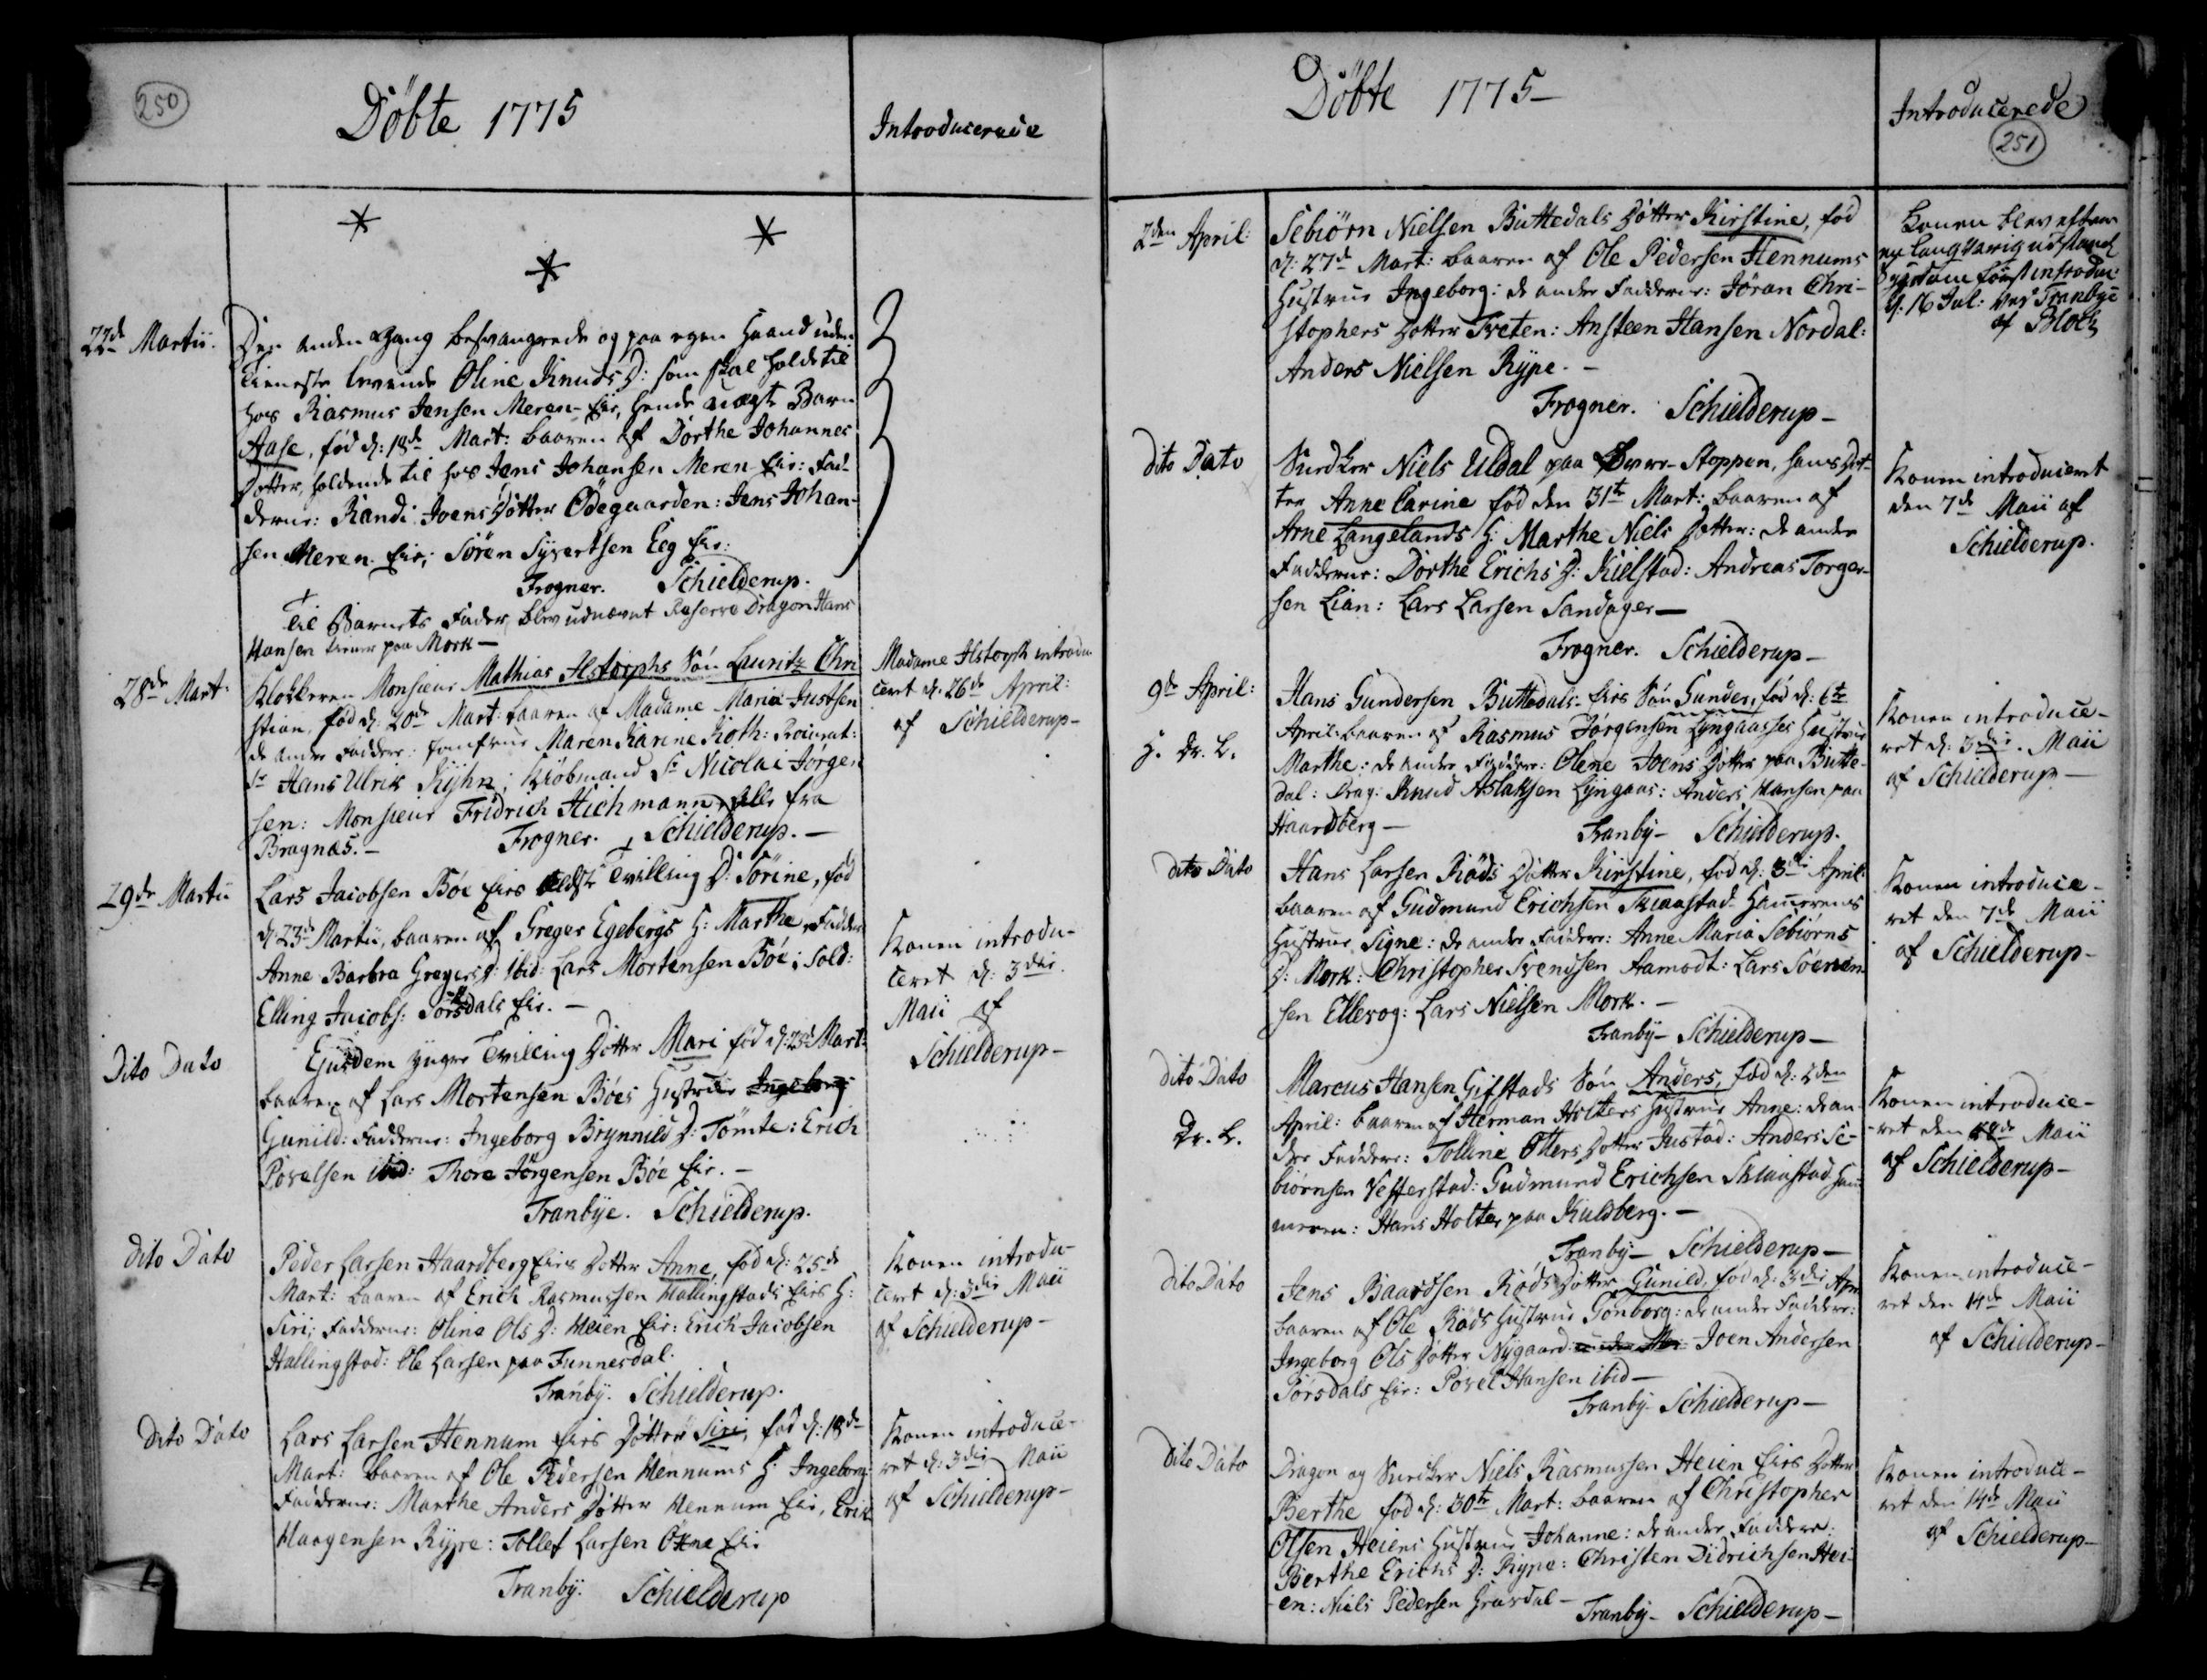 250
Döbte 1775
Introducerede
* * *
22de Martii.
Den anden Gang besvangrede og paa egen Haand uden
tieneste levende Oline Knuds D: som skal holde til
hos Rasmus Jensen Meren-Eie, hende uægte Barn
Aase, föd d: 18de Mart: baaren af Dorthe Johannes
Dotter, holdende til hos Jens Johansen Meren Eie: Fad-
derne: Randi Joens Dötter Ödegaarden: Jens Johan-
sen Meren Eie; Sören Syvertsen Eeg Eie:
Frogner. Schielderup.
Til Barnets Fader blev udnævnt Reserve Dragon Hans
Hansen tiener paa Mork —
28de Mart:
Klokkeren Monsieur Mathias Ilstorphs Sön Lauritz Chri
stian, föd d: 20de Mart: baaren af Madame Maria Justsen
de andre Faddere: Jomfrue Maren Karine Koth: Procurat:
Sr Hans Ulrik Kyhn; Kiöbmand Sr Nicolai Jörgen
sen: Monsieur Fridrich Hichmann, alle fra
Bragnæs. — Frogner. Schielderup. —
Madame Ilstorph introdu
ceret d: 26de April:
af Schielderup —
29de Martii
Lars Jacobsen Böe Eies ældste Tvilling D: Sörine, föd
d: 23de Martii, baaren af Greger Egebergs H: Marthe, Fadder
Anne Barbra Gregers D: ibid: Lars Mortensen Böe; Sold:
Elling Jacobs: Sörsdals Eie. —
Konen introdu-
ceret d: 3die
Maii af
Schielderup —
Dito Dato
Ejusdem yngre Tvilling Dötter Mari föd d: 23de Mart:
baaren af Lars Mortensen Böes Hustrue Ingeborg
Gunild: Fadderne: Ingeborg Brynnild D: Tömte: Erich
Povelsen ibid: Thore Jörgensen Böe Eie. —
Tranbye. Schielderup.
dito Dato
Peder Larsen Haardberg Eies Dotter Anne, föd d: 25de
Mart: baaren af Erich Rasmussen Hallingstads Eies H:
Siri; Fadderne: Oline Ols D: Heien Eie: Erich Jacobsen
Hallingstad: Ole Larsen paa Funnesdal.
Tranby. Schielderup.
Konen introdu-
ceret d: 3die Maii
af Schielderup —
dito Dato
Lars Larsen Hennum Eies Dötter Siri, föd d: 18de
Mart: baaren af Ole Pedersen Hennums H: Ingeborg
Fadderne: Marthe Anders Dötter Hennum Eie, Erik
Haagensen Rype: Tollef Larsen Okne Eie
Tranby. Schielderup
Konen introduce-
ret d: 3die Maii
af Schielderup —
Döbte 1775 —
Introducerede
251
2den April:
Sebiörn Nielsen Buttedals Dötter Kirstine, föd
d: 27de Mart: baaren af Ole Pedersen Hennums
Hustrue Ingeborg: de andre Fadderne: Jöran Chri-
stophers Dotter Tveten: Ansteen Hansen Nordal:
Anders Nielsen Rype. —
Frogner. Schielderup —
Konen blev efter
en langvarig udstand
Sygdom först introdu:
d: 16 Jul: ved Tranbye
af Bloch
dito Dato
Snedker Niels Uldal paa Övre-Stoppen, hans Dot-
ter Anne Carine föd den 31te Mart: baaren af
Arne Langelands H: Marthe Niels Dotter: de andre
Fadderne: Dorthe Erichs D: Kielstad: Andreas Torger-
sen Lian: Lars Larsen Sandager —
Frogner. Schielderup —
Konen introduceret
den 7de Maii af
Schielderup.
9de April:
H. Dr. L.
Hans Gundersen Buttedals-Eies Sön Gunder, föd d: 6te
April: baaren af Rasmus Jörgensen Lyngaasses Hustrue
Marthe: de andre Faddere: Olene Joens Dötter paa Butte-
dal: Drag: Knud Aslaksen Lyngaas: Anders Hansen paa
Haardberg — Tranby — Schielderup.
Konen introduce-
ret d: 3die Maii
af Schielderup —
dito Dato
Hans Larsen Röds Dötter Kirstine, föd d: 3die April:
baaren af Gudmund Erichsen Skiaastad Hammerens
Hustrue Signe: de andre Faddere: Anne Maria Sebiörns
D: Mork: Christopher Svendsen Aamodt: Lars Sören
sen Ellevog: Lars Nielsen Mork. —
Tranby — Schielderup —
Konen introduce-
ret den 7de Maii
af Schielderup —
dito Dato
Dr. L.
Marcus Hansen Gifstads Sön Anders, föd d: 2den
April: baaren af Herman Holters Hustrue Anne: de an-
dre Faddere: Tolline Ollers Dotter Justad: Anders Se-
biörnsen Vefferstad: Gudmund Erichsen Skiaastad Ham
meren: Hans Holter paa Kuldberg. —
Tranby — Schielderup —
Konen introduce-
ret den de Maii
af Schielderup —
Dito Dato
Jens Baardsen Röds Dötter Gunild, föd d: 3die Apr:
baaren af Ole Röds Hustrue Gönborg: de andre Faddere:
Ingeborg Ols Dötter Nygaard: Joen Andersen
Sörsdals Eie: Povel Hansen ibid —
Tranby — Schielderup —
Konen introduce-
ret den 14de Maii
af Schielderup —
Dito Dato
Dragon og Snedker Niels Rasmussen Heien Eies Dotter
Berthe föd d: 30te Mart: baaren af Christopher
Olsen Heiens Hustrue Johanne: de andre Faddere:
Berthe Erichs D: Rype: Christen Didrichsen Hei-
en: Niels Pedersen Gravdal — Tranby — Schielderup —
Konen introduce-
ret den 14de Maii
af Schielderup —